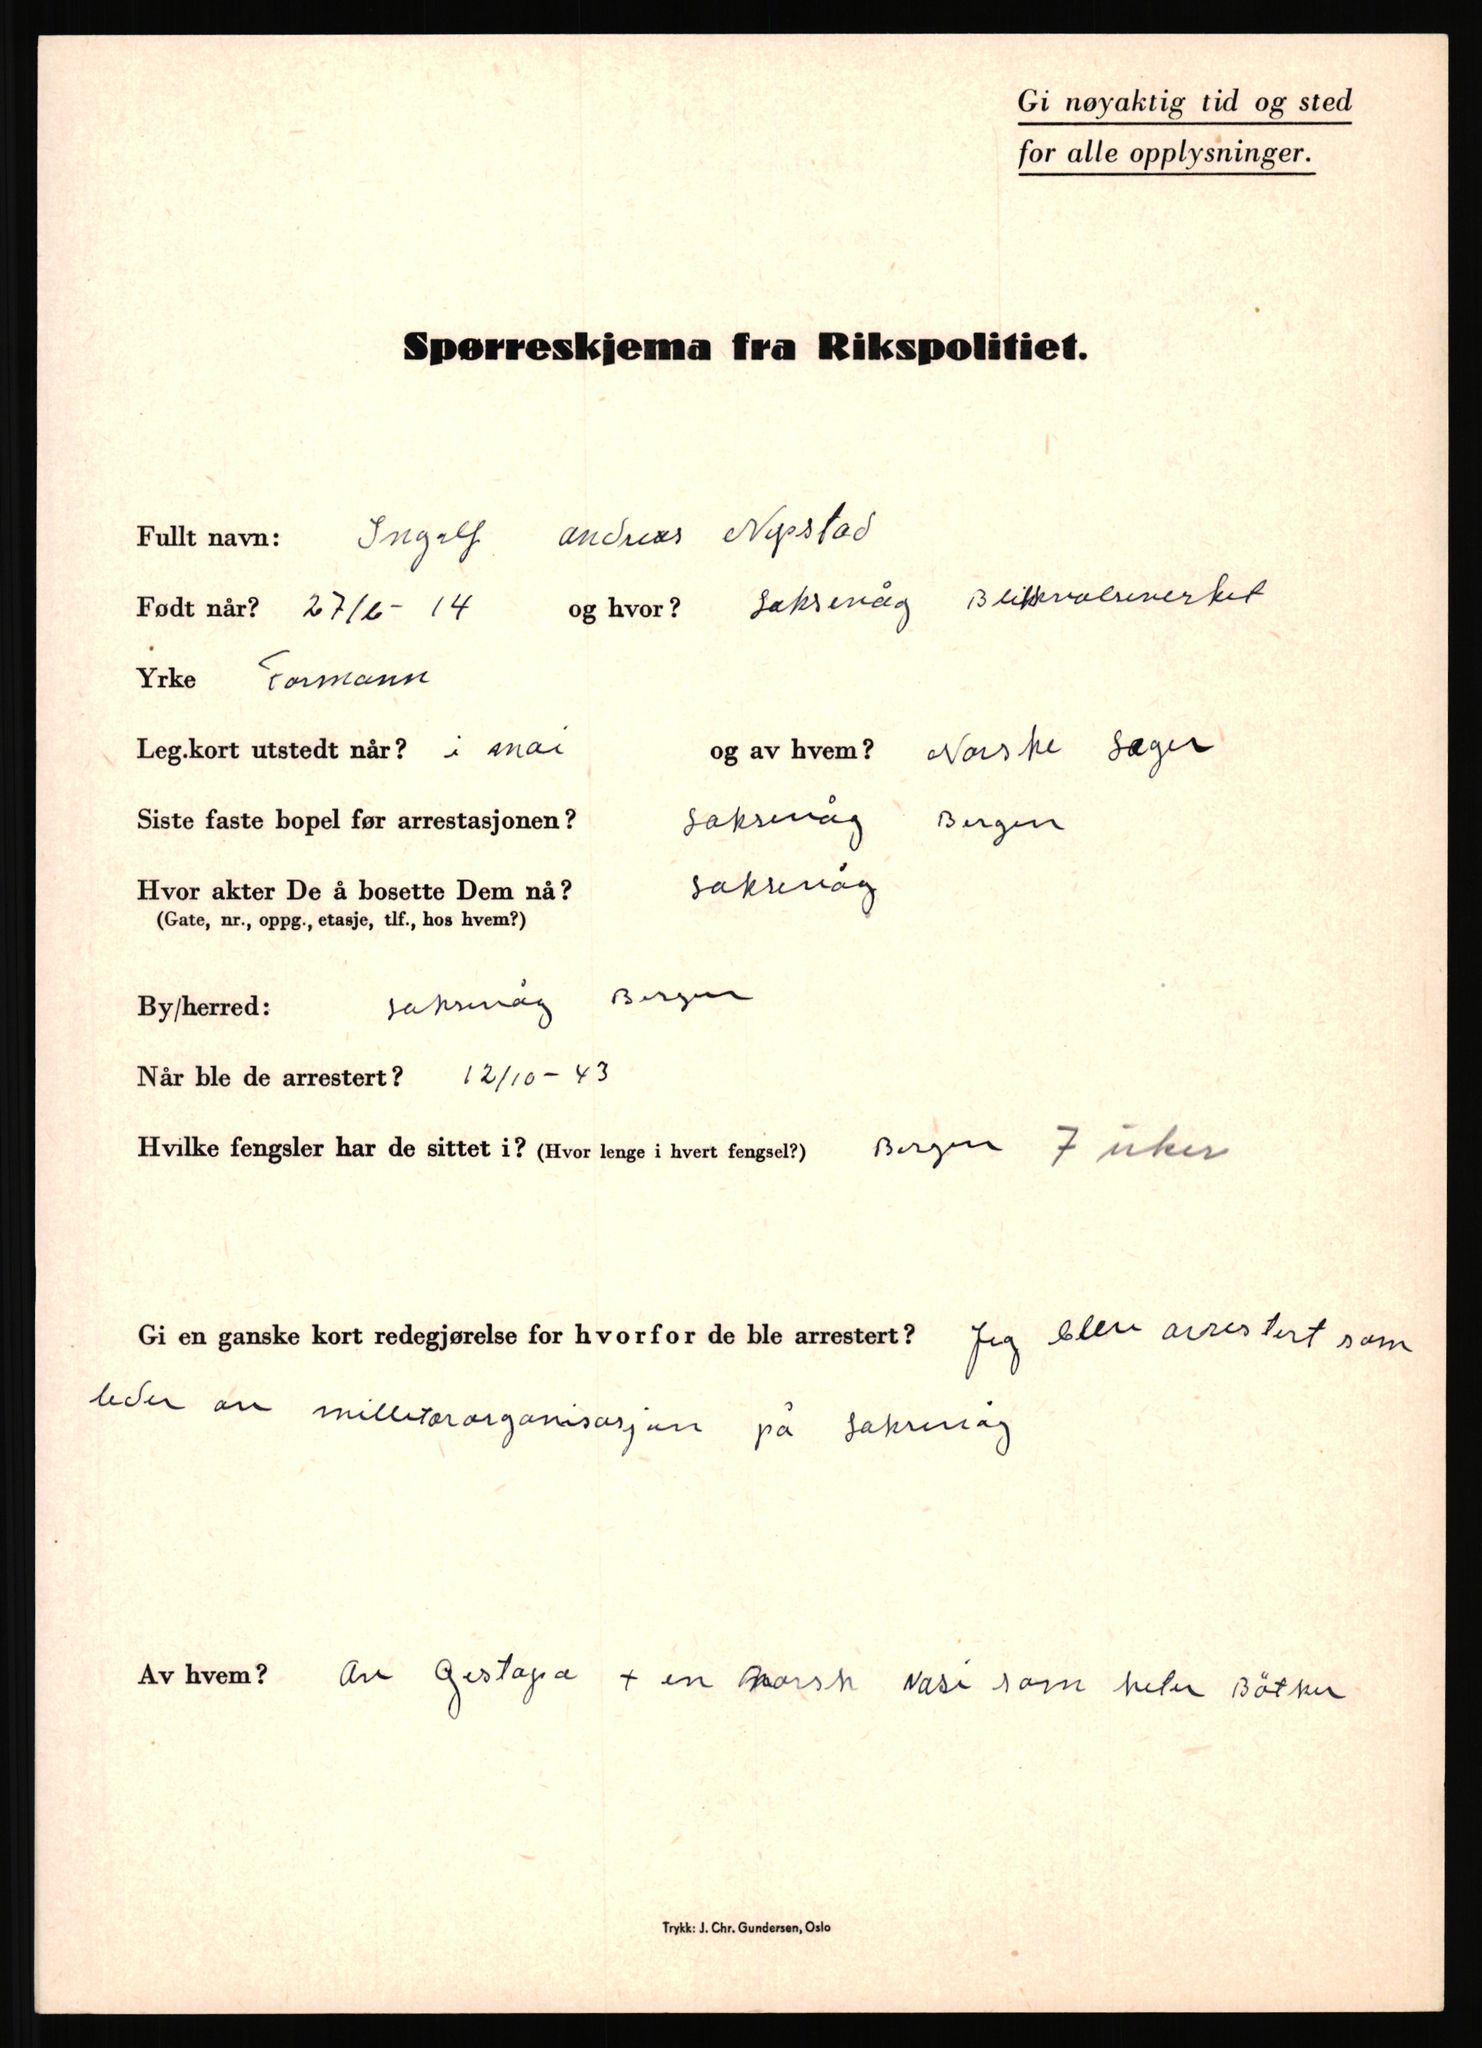 Gi nøyaktig tid og sted
for alle opplysninger.
Spørreskjema fra Rikspolitiet.
Fullt navn: Ingolf andreas Nypstad
Født når? 27/6- 14 og hvor? Saksevåg Blikkvalseverket
Yrke Formann
Leg.kort utstedt når? i mai og av hvem? Norske Leger
Siste faste bopel før arrestasjonen? Saksevåg Bergen
Hvor akter De å bosette Dem nå? Saksevåg
(Gate, nr., oppg., etasje, tlf., hos hvem?)
By/herred: Saksevåg Bergen
Når ble de arrestert? 12/10-43
Hvilke fengsler har de sittet i? (Hvor lenge i hvert fengsel?) Bergen 7 uker
Gi en ganske kort redegjørelse for hvorfor de ble arrestert? Jeg blev arrestert som
leder av milletærorganisasjon på Saksevåg
Av hvem? Av Gestapo + en norsk Nasi som heter Bötker
Trykk: J. Chr. Gundersen, Oslo